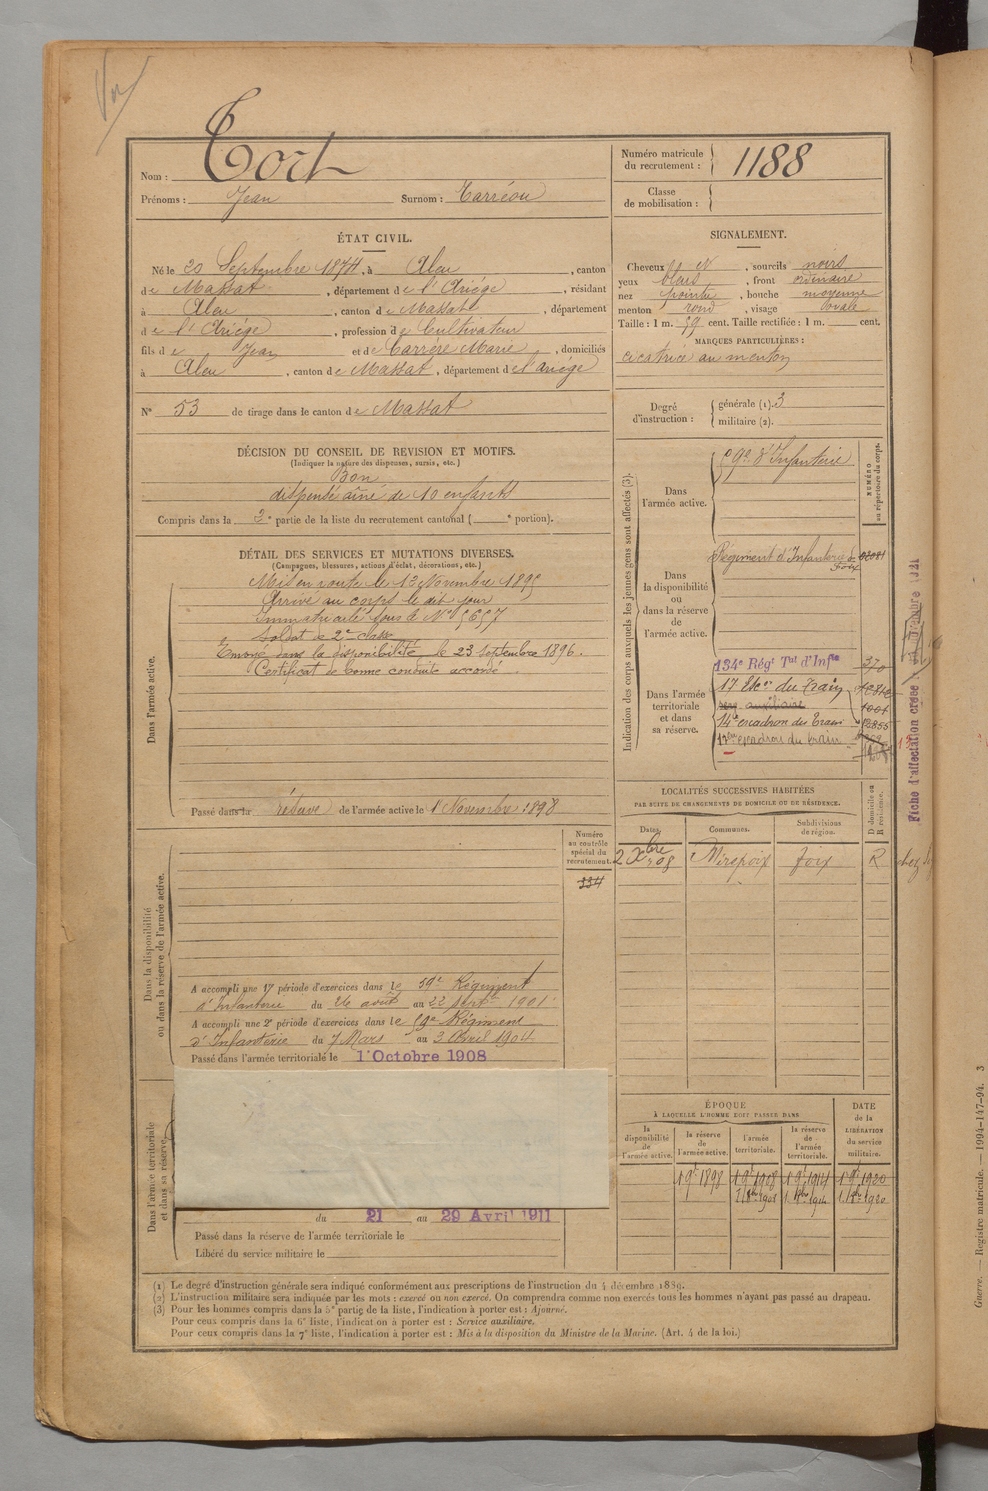 Nom : Tort
Prénoms : Jean Surnom : Carréou
Numéro matricule du recrutement : 1188
Classe de mobilisation :
ÉTAT CIVIL.
Né le 20 Septembre 1874, à Aleu, canton
de Massat, département de l'Ariège, résidant
à Aleu, canton de Massat, département
de l'Ariège, profession de Cultivateur
fils de Jean et de Carrère Marie, domiciliés
à Aleu, canton de Massat, département de l'Ariège
N° 53 de tirage dans le canton de Massat
SIGNALEMENT.
Cheveux et N, sourcils noirs
yeux, front ordinaire
nez pointu, bouche moyenne
menton rond, visage ovale
Taille : 1 m. 59 cent. Taille rectifiée : 1 m. cent.
MARQUES PARTICULIÈRES :
cicatrice au menton
Degré d'instruction : générale (1). 3
militaire (2).
DÉCISION DU CONSEIL DE REVISION ET MOTIFS.
(Indiquer la nature des dispenses, sursis, etc.)
Bon
dispensé aîné de 10 enfants
Compris dans la 2e partie de la liste du recrutement cantonal ( e portion).
DÉTAIL DES SERVICES ET MUTATIONS DIVERSES.
(Campagnes, blessures, actions d'éclat, décorations, etc.)
Dans l'armée active.
Mis en route le 13 Novembre 1895
Arrivé au corps le dit jour
Immatriculé sous le N° 5657
Soldat de 2e classe
Envoyé dans la disponibilité le 23 Septembre 1896.
Certificat de bonne conduite accordé.
Passé dans la réserve de l'armée active le 1 Novembre 1898
Indication des corps auxquels les jeunes gens sont affectés (3).
NUMÉRO au répertoire du corps.
Dans l'armée active.
59e d'Infanterie
Dans la disponibilité ou dans la réserve de l'armée active.
Régiment d'Infanterie de Foix
Dans l'armée territoriale et dans sa réserve.
134e Rég Tal d'Infie 370
17 Esc on du Train
serv. auxiliaire
14e escadron du Train
17e escadron du train
Fiche d'affectation créée
LOCALITÉS SUCCESSIVES HABITÉES
PAR SUITE DE CHANGEMENTS DE DOMICILE OU DE RÉSIDENCE.
Dates. Communes. Subdivisions de région. D domicile ou R résidence.
2 Xbre 08 Mirepoix Foix R chez
Numéro au contrôle spécial du recrutement.
334
Dans la disponibilité ou dans la réserve de l'armée active.
A accompli une 1e période d'exercices dans le 59e Régiment
d'Infanterie du 26 août au 22 septre 1901
A accompli une 2e période d'exercices dans le 59e Régiment
d'Infanterie du 7 Mars au 3 Avril 1904
Passé dans l'armée territoriale le 1' Octobre 1908
Dans l'armée territoriale et dans sa réserve.
du 21 au 29 Avril 1911
Passé dans la réserve de l'armée territoriale le
Libéré du service militaire le
ÉPOQUE
À LAQUELLE L'HOMME DOIT PASSER DANS
DATE de la LIBÉRATION du service militaire.
la disponibilité de l'armée active. la réserve de l'armée active. l'armée territoriale. la réserve de l'armée territoriale.
1 9e 1898 1 9e 1908 1 9e 1914 1 9e 1920
1 8bre 1908 1 8bre 1914 1 8bre 1920
(1) Le degré d'instruction générale sera indiqué conformément aux prescriptions de l'instruction du 4 décembre 1889.
(2) L'instruction militaire sera indiquée par les mots : exercé ou non exercé. On comprendra comme non exercés tous les hommes n'ayant pas passé au drapeau.
(3) Pour les hommes compris dans la 5e partie de la liste, l'indication à porter est : Ajourné.
Pour ceux compris dans la 6e liste, l'indication à porter est : Service auxiliaire.
Pour ceux compris dans la 7e liste, l'indication à porter est : Mis à la disposition du Ministre de la Marine. (Art. 4 de la loi.)
Guerre. — Registre matricule. — 1994-147-94. 3